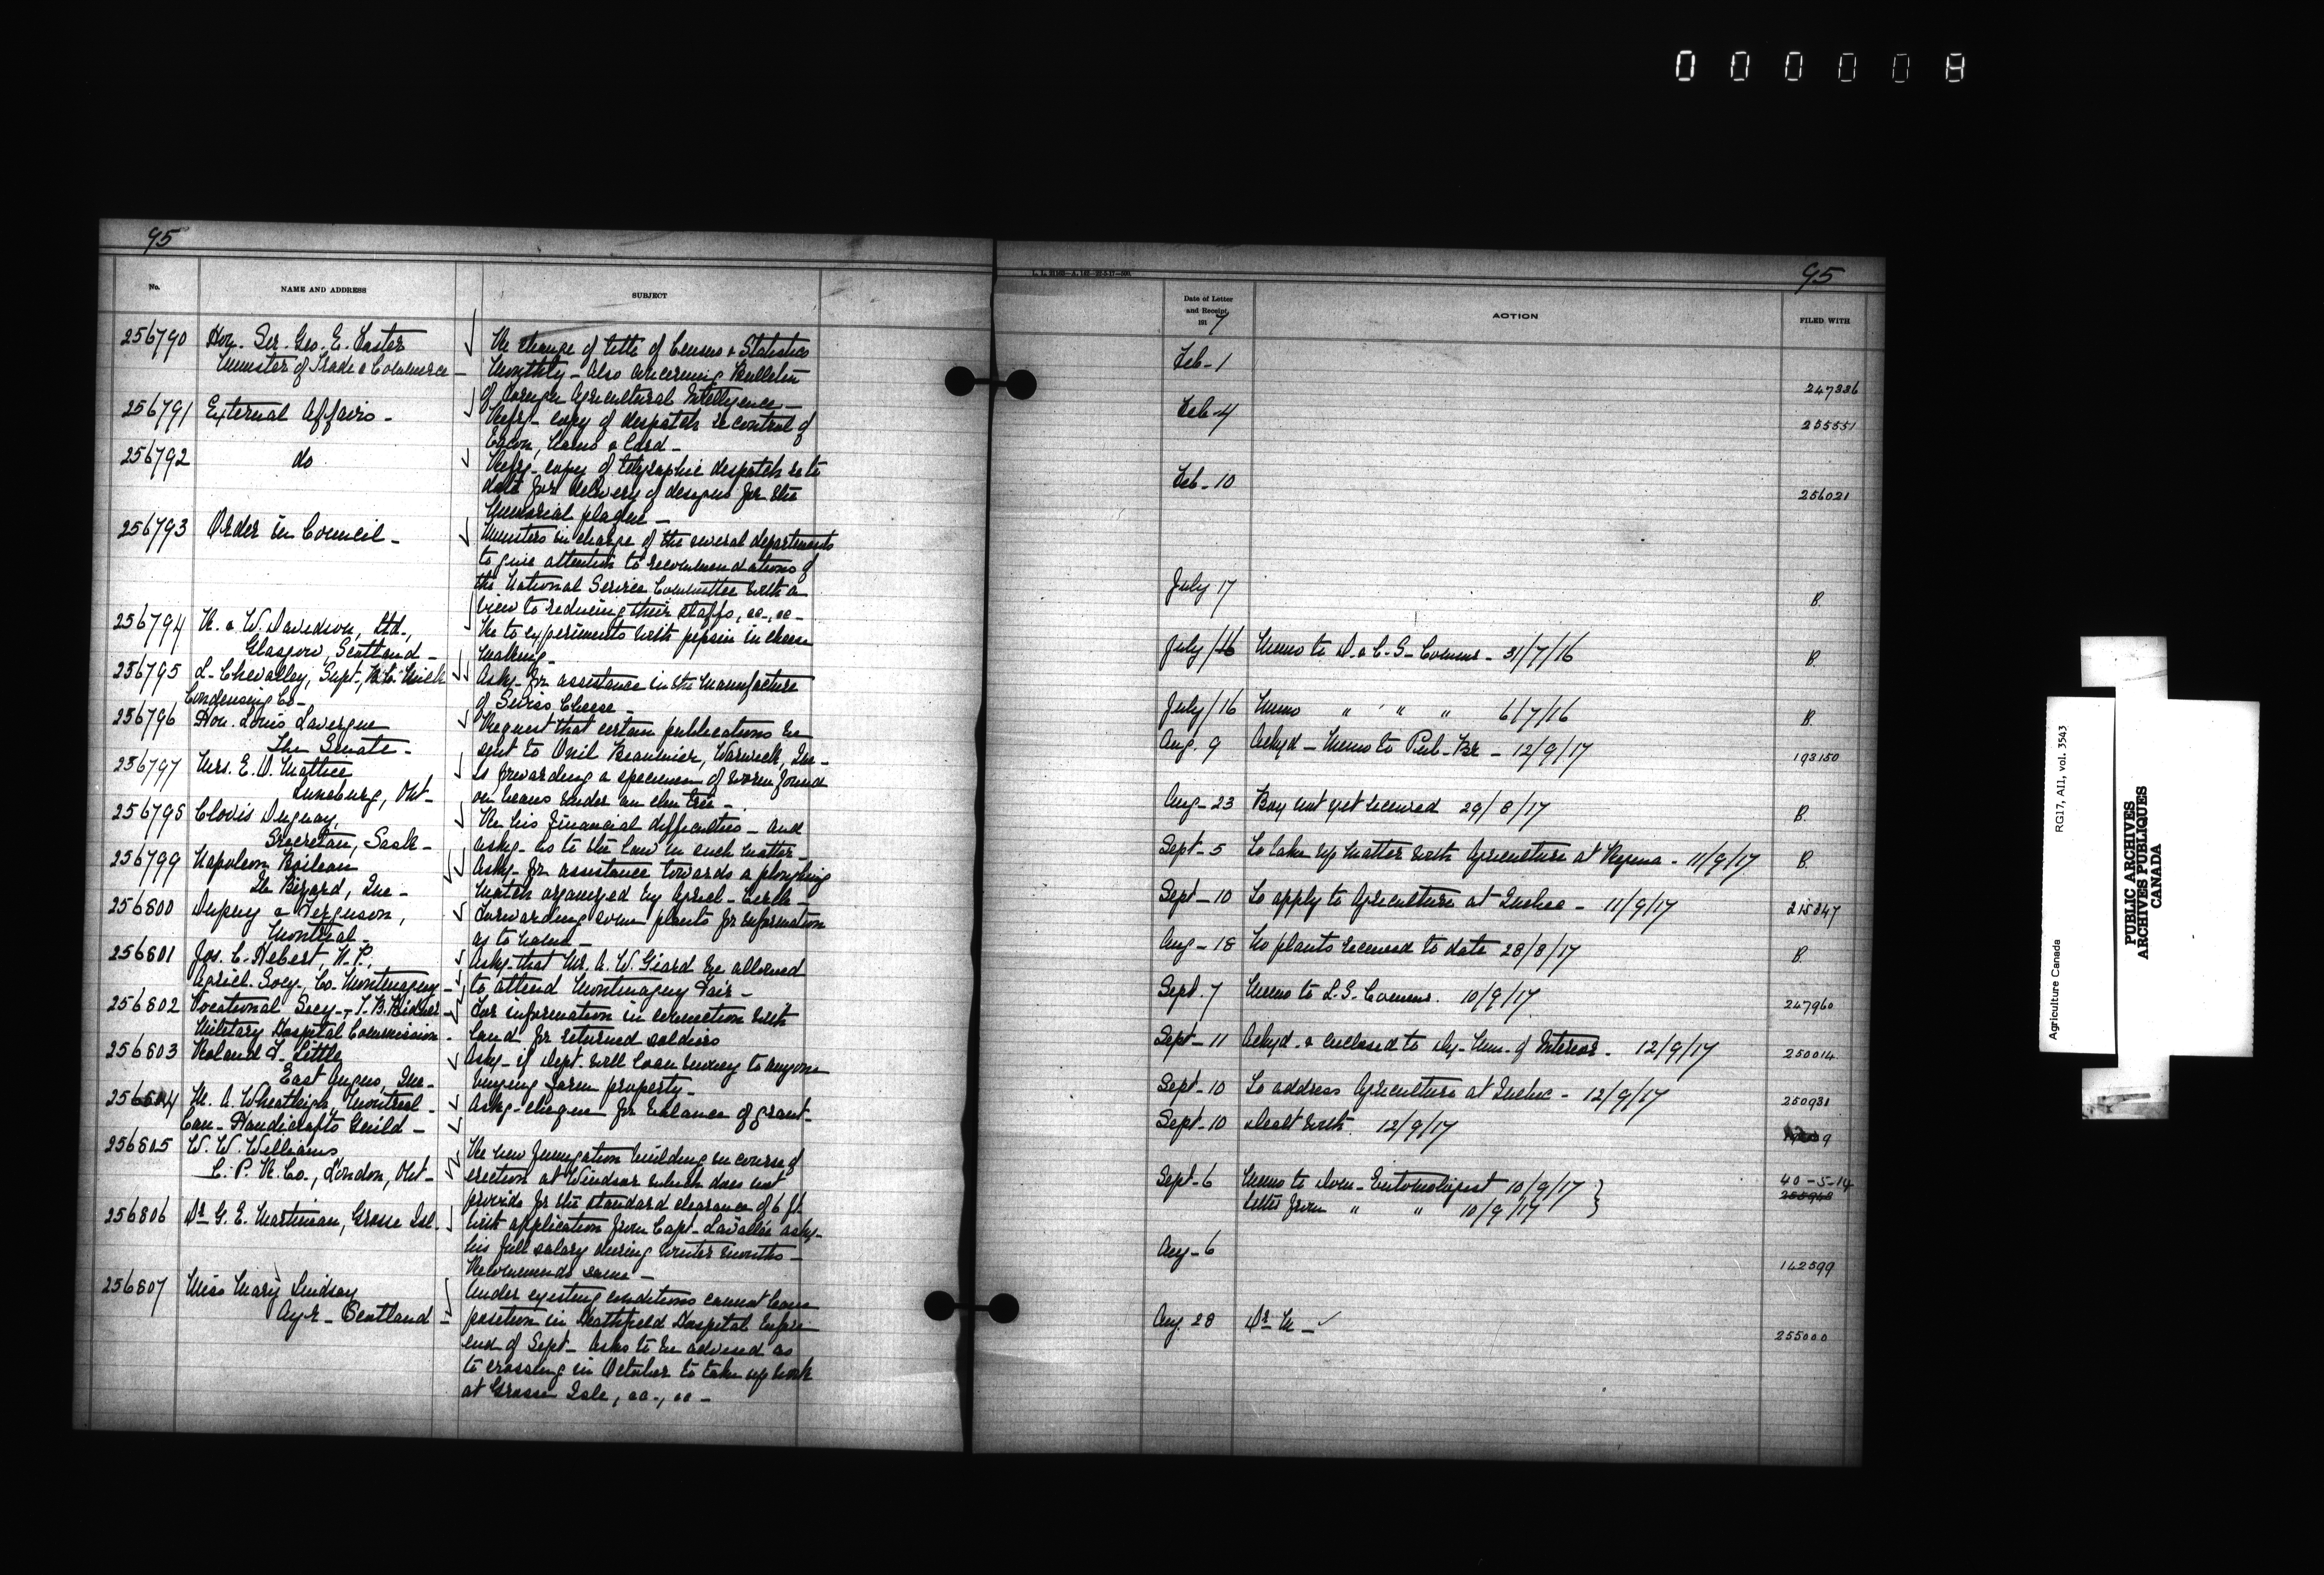 000008
95
No.
NAME AND ADDRESS
SUBJECT
256790 Hon. Sir Geo. E. Foster
Minister of Trade & Commerce -
Re change of title of Census & Statistics
Monthly - Also concerning Bulletin
of Foreign Agricultural Intelligence -
256791 External Affairs -
copy of despatch re control of
Bacon, Hams & Lard -
256792 do
copy of telegraphic despatch as to
date for delivery of designs for the
Memorial plaque -
256793 Order in Council -
Ministers in charge of the several departments
to give attention to recommendations of
the National Service Committee with a
view to reducing their staffs, &c., &c -
256794 R. & W. Davidson, Ltd.,
Glasgow, Scotland -
Re to experiments with pepsin in cheese
making -
256795 L. Chevalley, Supt., Milk
Condensing Co -
Asks for assistance in the manufacture
of Swiss Cheese -
256796 Hon. Louis Lavergne
The Senate -
Request that certain publications be
sent to Beaumier, Warwick, Que -
256797 Mrs. E. O. Mattice
Lunenburg, Ont -
Is forwarding a specimen of worm found
on beans under an elm tree -
256798 Clovis Dupuay,
Gravelbourg, Sask -
Re his financial difficulties - and
asks as to the law in such matter -
256799 Napoleon Boileau
Ile Bizard, Que -
Asks for assistance towards a ploughing
match arranged by Agricl. Circle -
256800 Dupuy & Ferguson,
Montreal -
Forwarding some plants for information
as to name -
256801 Jos. C. Hebert, N.P.,
Agricl. Socy., Co. Montmagny -
Asks that Mr. A. W. Giard be allowed
to attend Montmagny Fair -
256802 Vocational Secy - T. B. Kidner
Military Hospital Commission -
For information in connection with
land for returned soldiers
256803 Roland L. Little
East Angus, Que -
Asks if Dept. will loan money to anyone
buying farm property -
M. A. Wheatleigh, Montreal -
Can. Handicrafts Guild -
Asks cheque for balance of grant -
256805 W. W. Williams
C. P. R. Co., London, Ont -
Re new fumigation building in course of
erection at Windsor which does not
provide for the standard clearance of 6 ft.
256806 Dr. G. E. Martineau, Grosse Isl.
With application from Capt. Lavallée asks
his full salary during winter months -
Recommends same -
256807 Miss Mary Lindsay
Ayr - Scotland -
Under existing conditions cannot leave
position in Heathfield Hospital before
end of Sept - Asks to be advised as
to crossing in October to take up work
at Grosse Isle, &c., &c -
95
Date of Letter
and Receipt
191 7
ACTION
FILED WITH
Feb - 1
247336
Feb - 4
255551
Feb - 10
256021
July 17
B.
July /16 Memo to D. & C. S. Commr - 31/7/16
B.
July /16 Memo " " " 6/7/16
B
Aug. 9 Ackg'd - Memo to Pub. Br - 12/9/17
193150
Aug - 23 Box not yet received 29/8/17
B.
Sept - 5 To take up matter with Agriculture at Regina - 11/9/17
B.
Sept - 10 To apply to Agriculture at Quebec - 11/9/17
215847
Aug - 18 No plants received to date 28/8/17
B.
Sept. 7 Memo to L. S. Commr. 10/9/17
247960
Sept - 11 Ackg'd & enclosed to Dy. Min. of Interior - 12/9/17
250014
Sept - 10 To address Agriculture at Quebec - 12/9/17
250931
Sept - 10 Dealt with 12/9/17
Sept - 6 Memo to Dom - Entomologist 10/9/17
letter from " " 10/9/17
40-5-14
Aug - 6
142599
Aug. 28 Dr. M - ✓
255000
Agriculture Canada RG17, AII, vol. 3543
PUBLIC ARCHIVES
ARCHIVES PUBLIQUES
CANADA